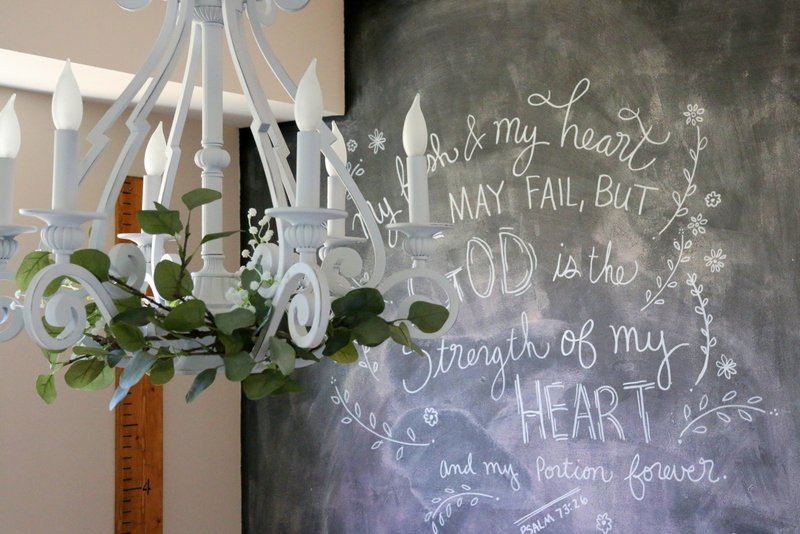 my flesh & my heart
MAY FAIL, BUT
GOD is the
Strength of my
HEART
and my Portion forever.
PSALM 73:26
4